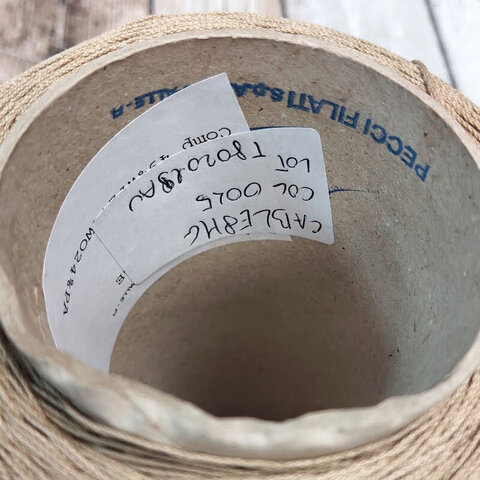 PECCI FILATI S.p.A.
CABLE8MG
COL 0015
LOT T802018AU
Comp
WO248PA
E